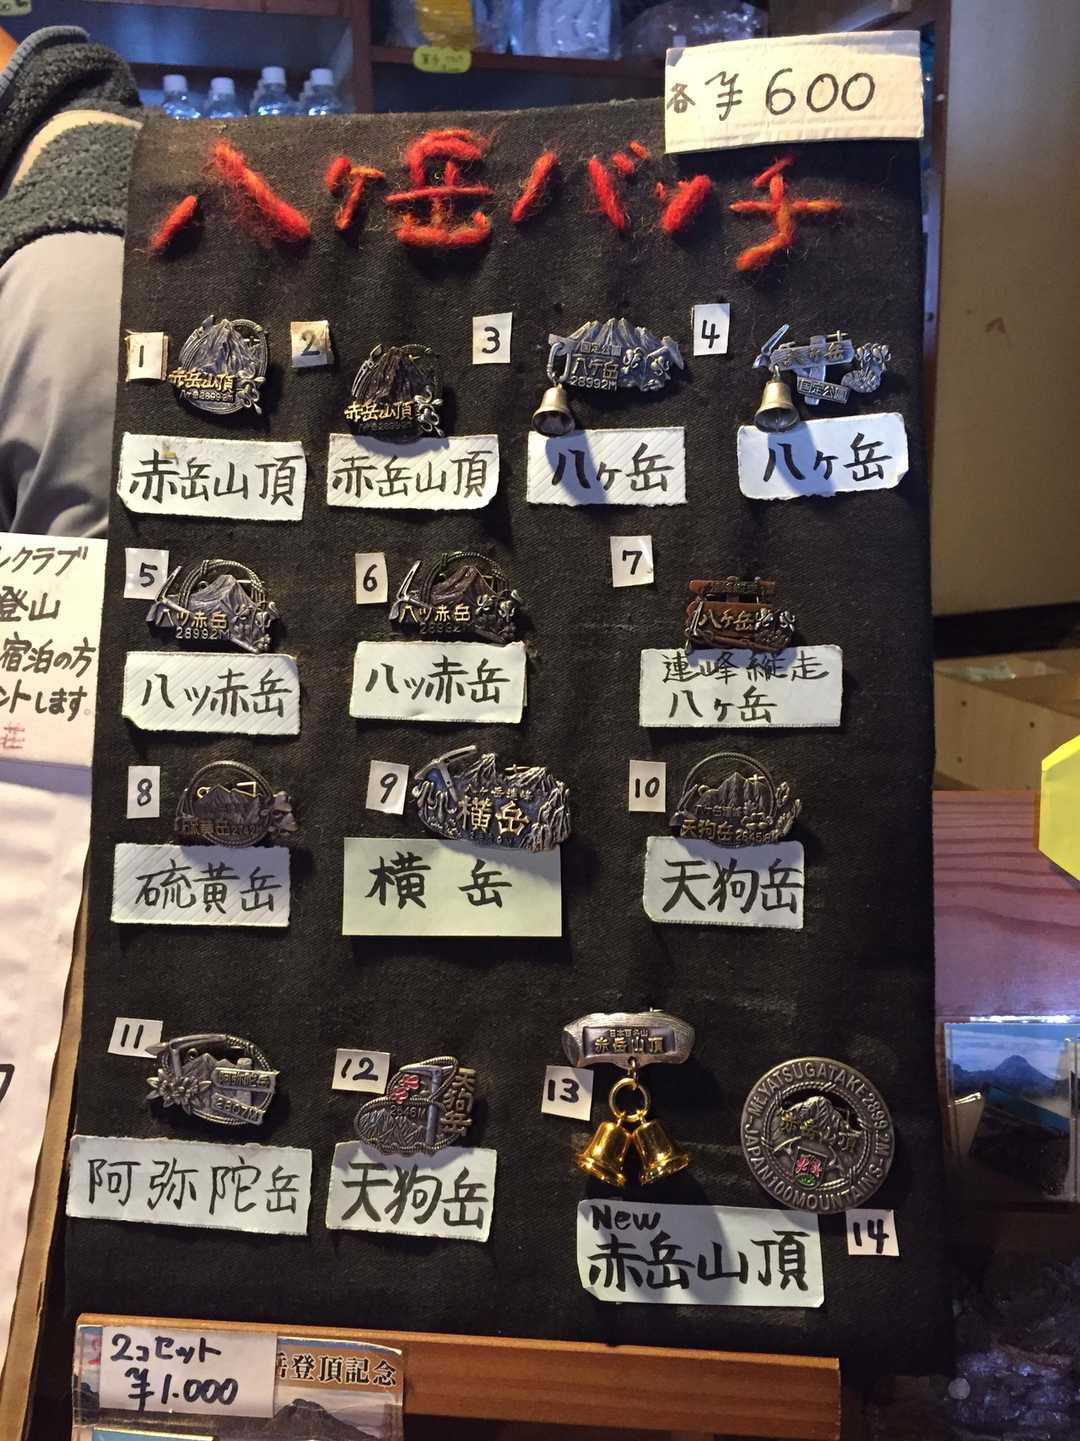 各 ¥600
八ヶ岳バッチ
1
2
3
4
赤岳山頂
赤岳山頂
国定公園
八ケ岳
28992M
国定公園
赤岳山頂
赤岳山頂
八ヶ岳
八ヶ岳
5
6
7
八ッ赤岳
28992M
八ッ赤岳
28992M
八ケ岳
八ッ赤岳
八ッ赤岳
連峰縦走
八ヶ岳
8
9
10
硫黄岳
横岳
天狗岳
硫黄岳
横岳
天狗岳
11
12
13
14
阿弥陀岳
天狗岳
2646M
日本百名山
赤岳山頂
阿弥陀岳
天狗岳
New
赤岳山頂
レクラブ
登山
宿泊の方
ントします。
荘
2コセット
¥1.000
岳登頂記念